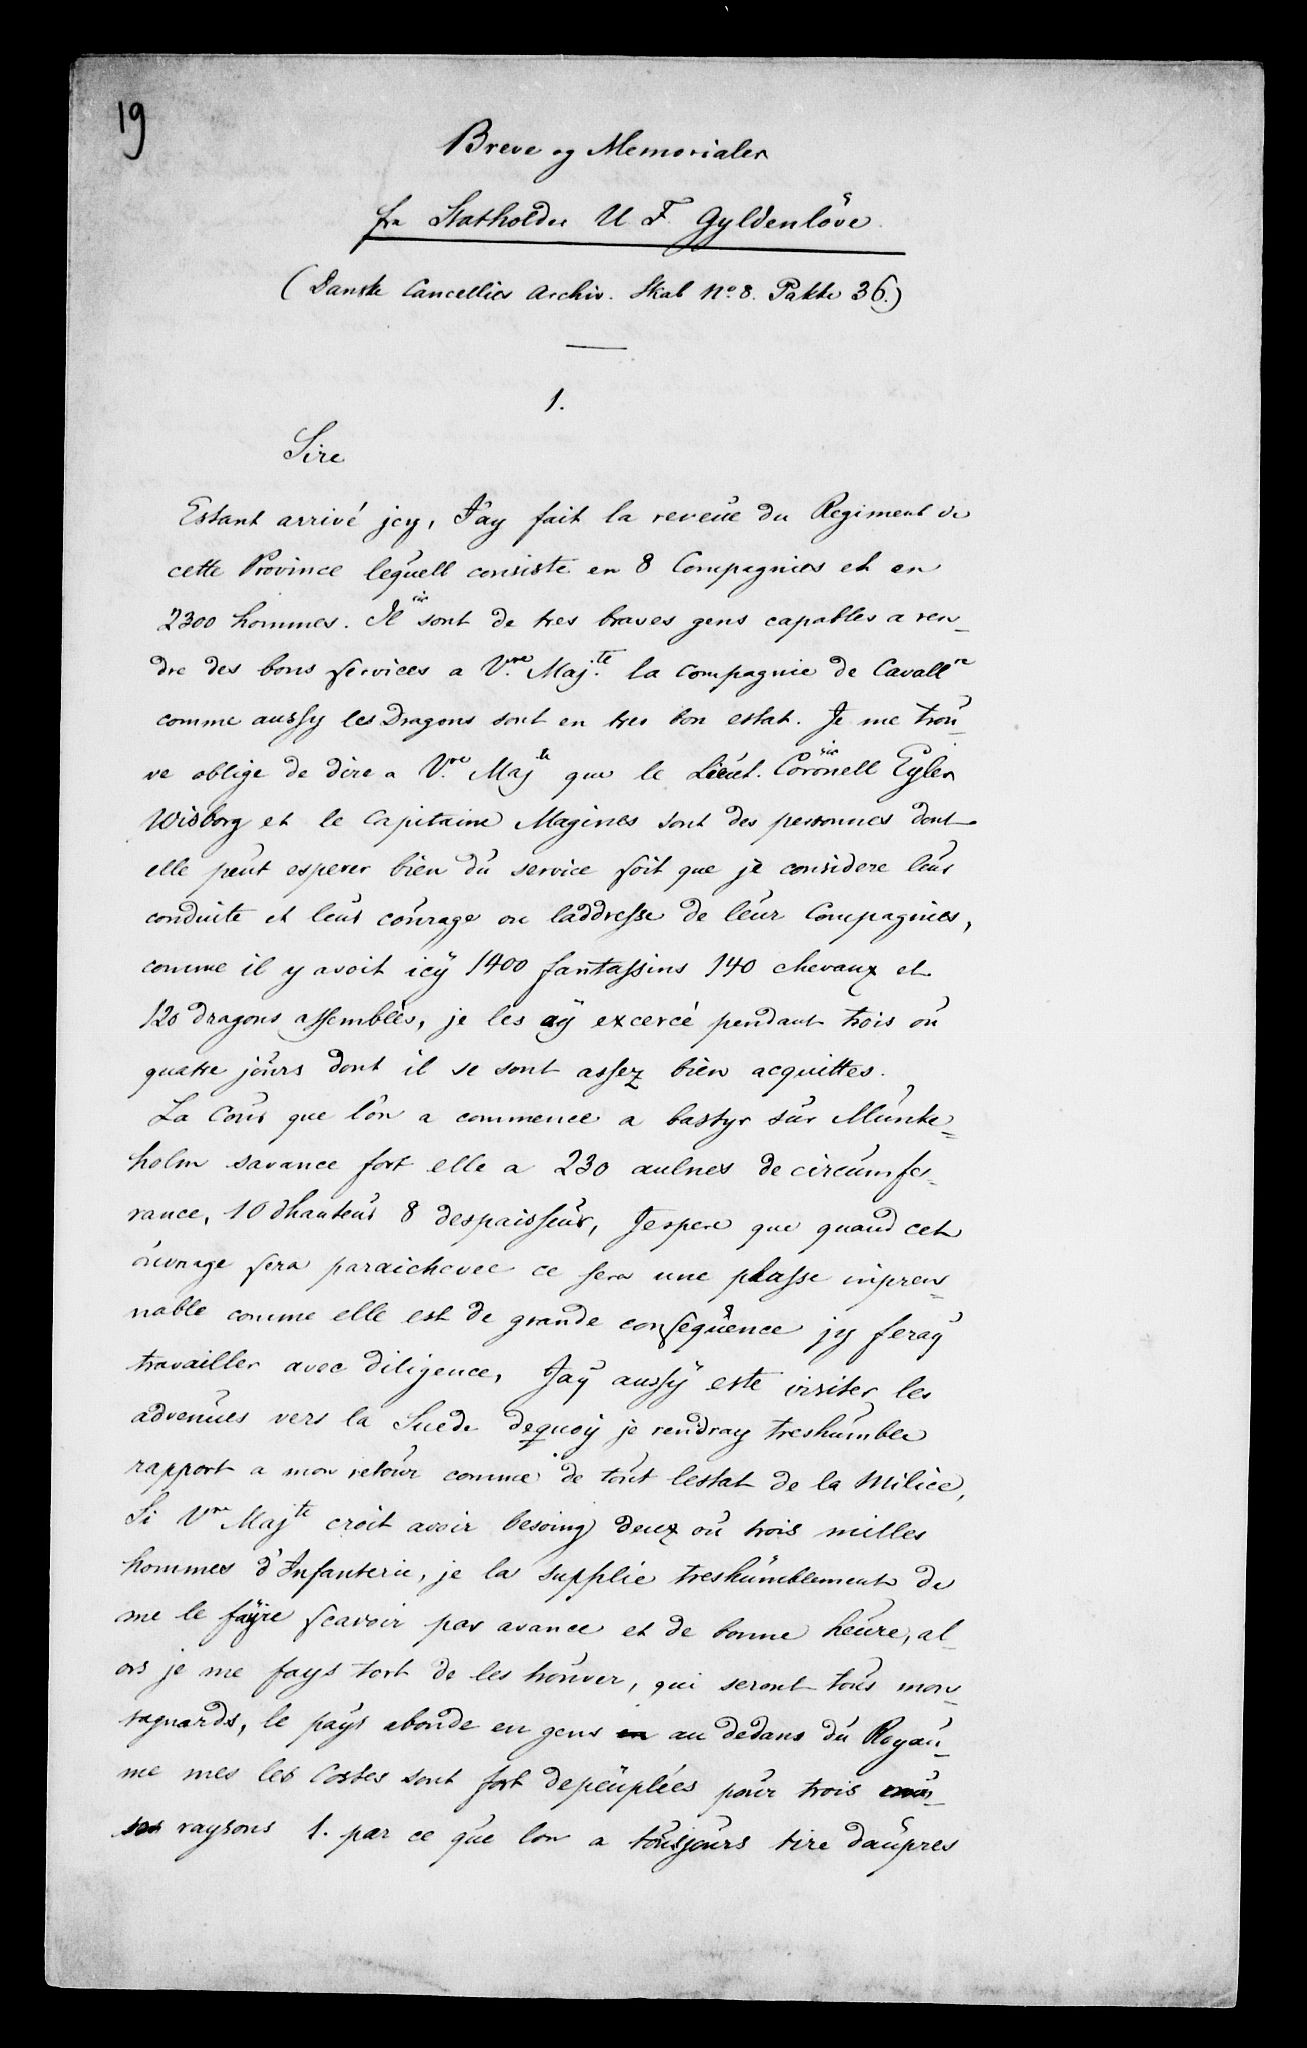 19
Breve og Memorialer
fra Statholder U F. Gyldenlöve.
(Danske Cancellies Archiv. Skab No. 8. Pakke 36.)
1.
Sire
Estant arrivé jcy, J'ay fait la reveüe du Regiment de
cette Province lequell consiste en 8 Compagnies et en
2300 hommes. Il sic sont de tres braves gens capables a ren-
dre des bons services a Vre. Maj.te la Compagnie de Cavallre
comme aussy les Dragons sont en tres bon estat. Je me trou-
ve oblige de dire a Vre. Majte que le Lieut. Coronell sic Eyler
Wisborg et le Capitaine Magines sont des personnes dont
elle peut esperer bien du service soit que je considere leur
conduite et leur courage ou laddresse de leur Compagnies,
comme il y avoit icÿ 1400 fantassins 140 chevaux et
120 dragons assemblés, je les aÿ excercé pendant trois ou
quatre jours dont il se sont assez bien acquittes.
La Cour que lon a commence a bastyr sur Munke=
holm savance fort elle a 230 aulnes de circumfe-
rance, 10 dhauteur 8 despaisseur, Jespere que quand cet
ouvrage sera paraichevee ce sera une plasse inpren-
nable comme elle est de grande consequence jy feraÿ
travailler avec diligence, Jaÿ aussÿ este visiter les
advenues vers la Suede dequoÿ je rendray treshumble
rapport a mon retour comme de tout lestat de la Milice,
Si Vre Majte croit avoir besoing deux ou trois milles
hommes d'Infanterie, je la supplie treshumblement de
me le faÿre scavoir par avance et de bonne heure, al-
ors je me fays fort de les trouver, qui seront tous mon-
tagnards, le pays abonde en gens en au dedans du Royau-
me mes les Costes sont fort depeuplées pour trois
raysons 1. par ce que lon a tousjours tire daupres